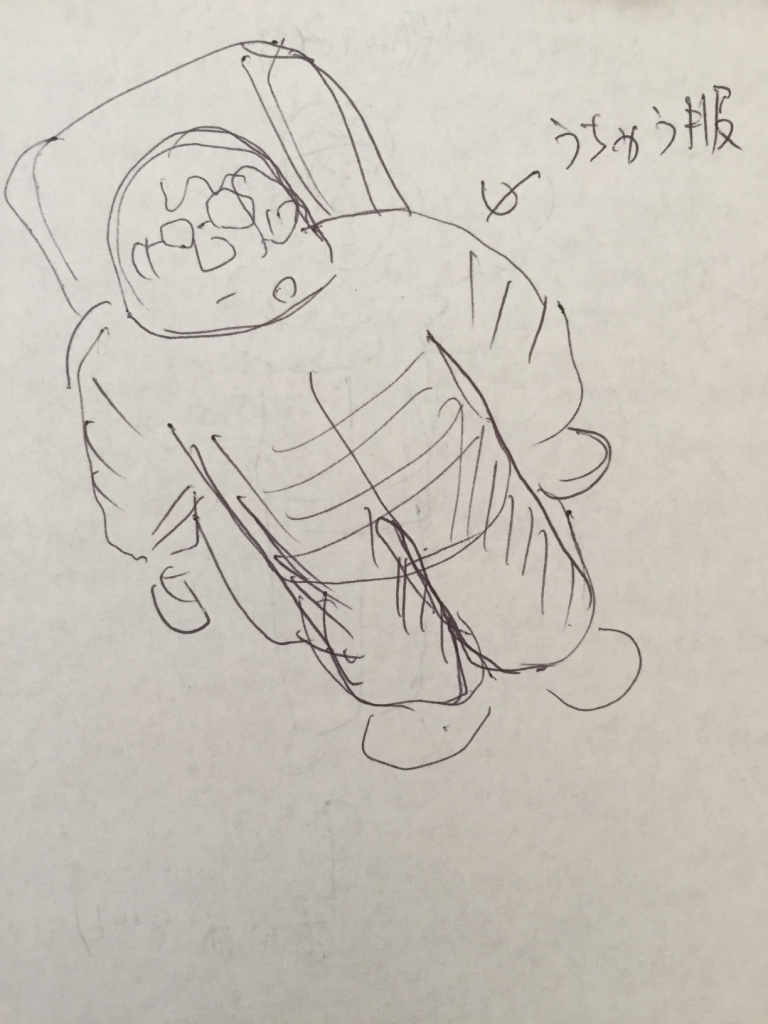 うちゅう服